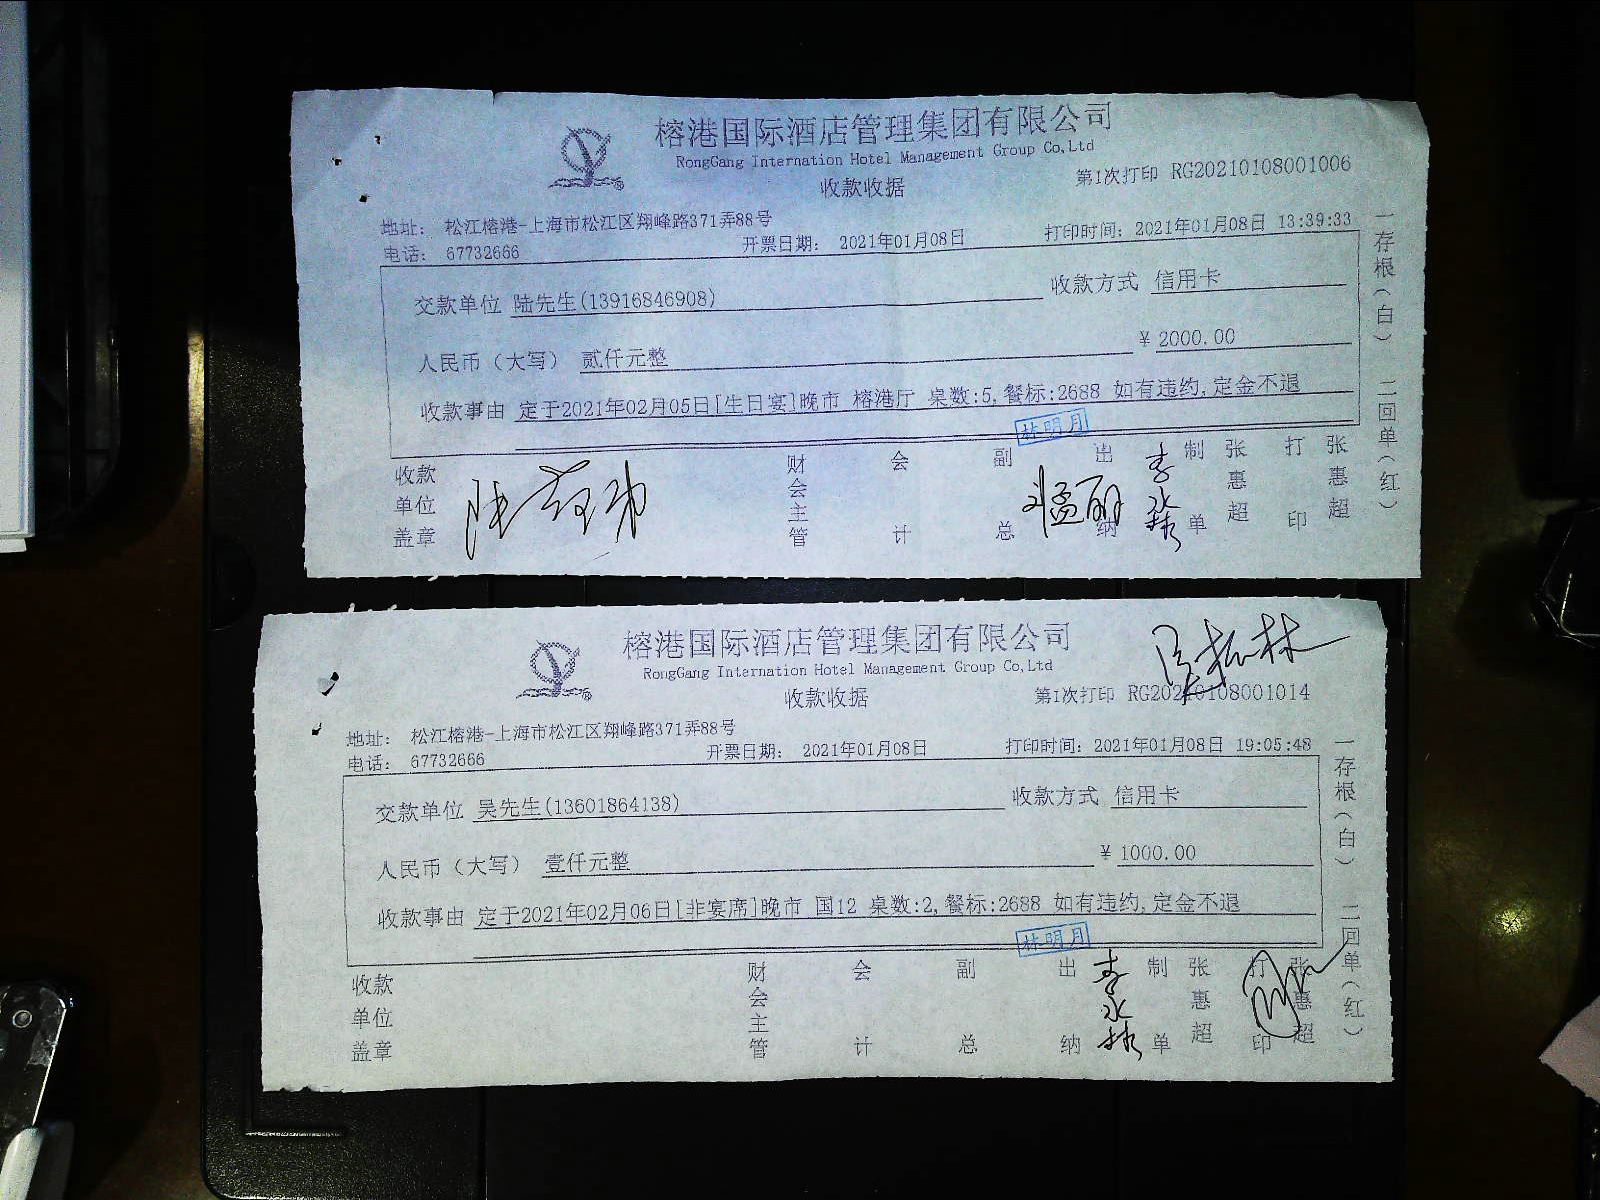 榕港国际酒店管理集团有限公司
RongGang Internation Hotel Management Group Co,Ltd
收款收据
第1次打印 RG20210108001006
地址: 松江榕港-上海市松江区翔峰路371弄88号
电话: 67732666
开票日期: 2021年01月08日
打印时间: 2021年01月08日 13:39:33
交款单位 陆先生(13916846908)
收款方式 信用卡
人民币(大写) 贰仟元整
¥ 2000.00
收款事由 定于2021年02月05日[生日宴]晚市 榕港厅 桌数:5,餐标:2688 如有违约,定金不退
林明月
收款单位盖章
财会主管
会计
副总
出纳
李永林
制单
张惠超
打印
张惠超
一存根(白) 二回单(红)
榕港国际酒店管理集团有限公司
RongGang Internation Hotel Management Group Co,Ltd
收款收据
第1次打印 RG20210108001014
地址: 松江榕港-上海市松江区翔峰路371弄88号
电话: 67732666
开票日期: 2021年01月08日
打印时间: 2021年01月08日 19:05:48
交款单位 吴先生(13601864138)
收款方式 信用卡
人民币(大写) 壹仟元整
¥ 1000.00
收款事由 定于2021年02月06日[非宴席]晚市 国12 桌数:2,餐标:2688 如有违约,定金不退
林明月
收款单位盖章
财会主管
会计
副总
出纳
李永林
制单
张惠超
打印
张惠超
一存根(白) 二回单(红)